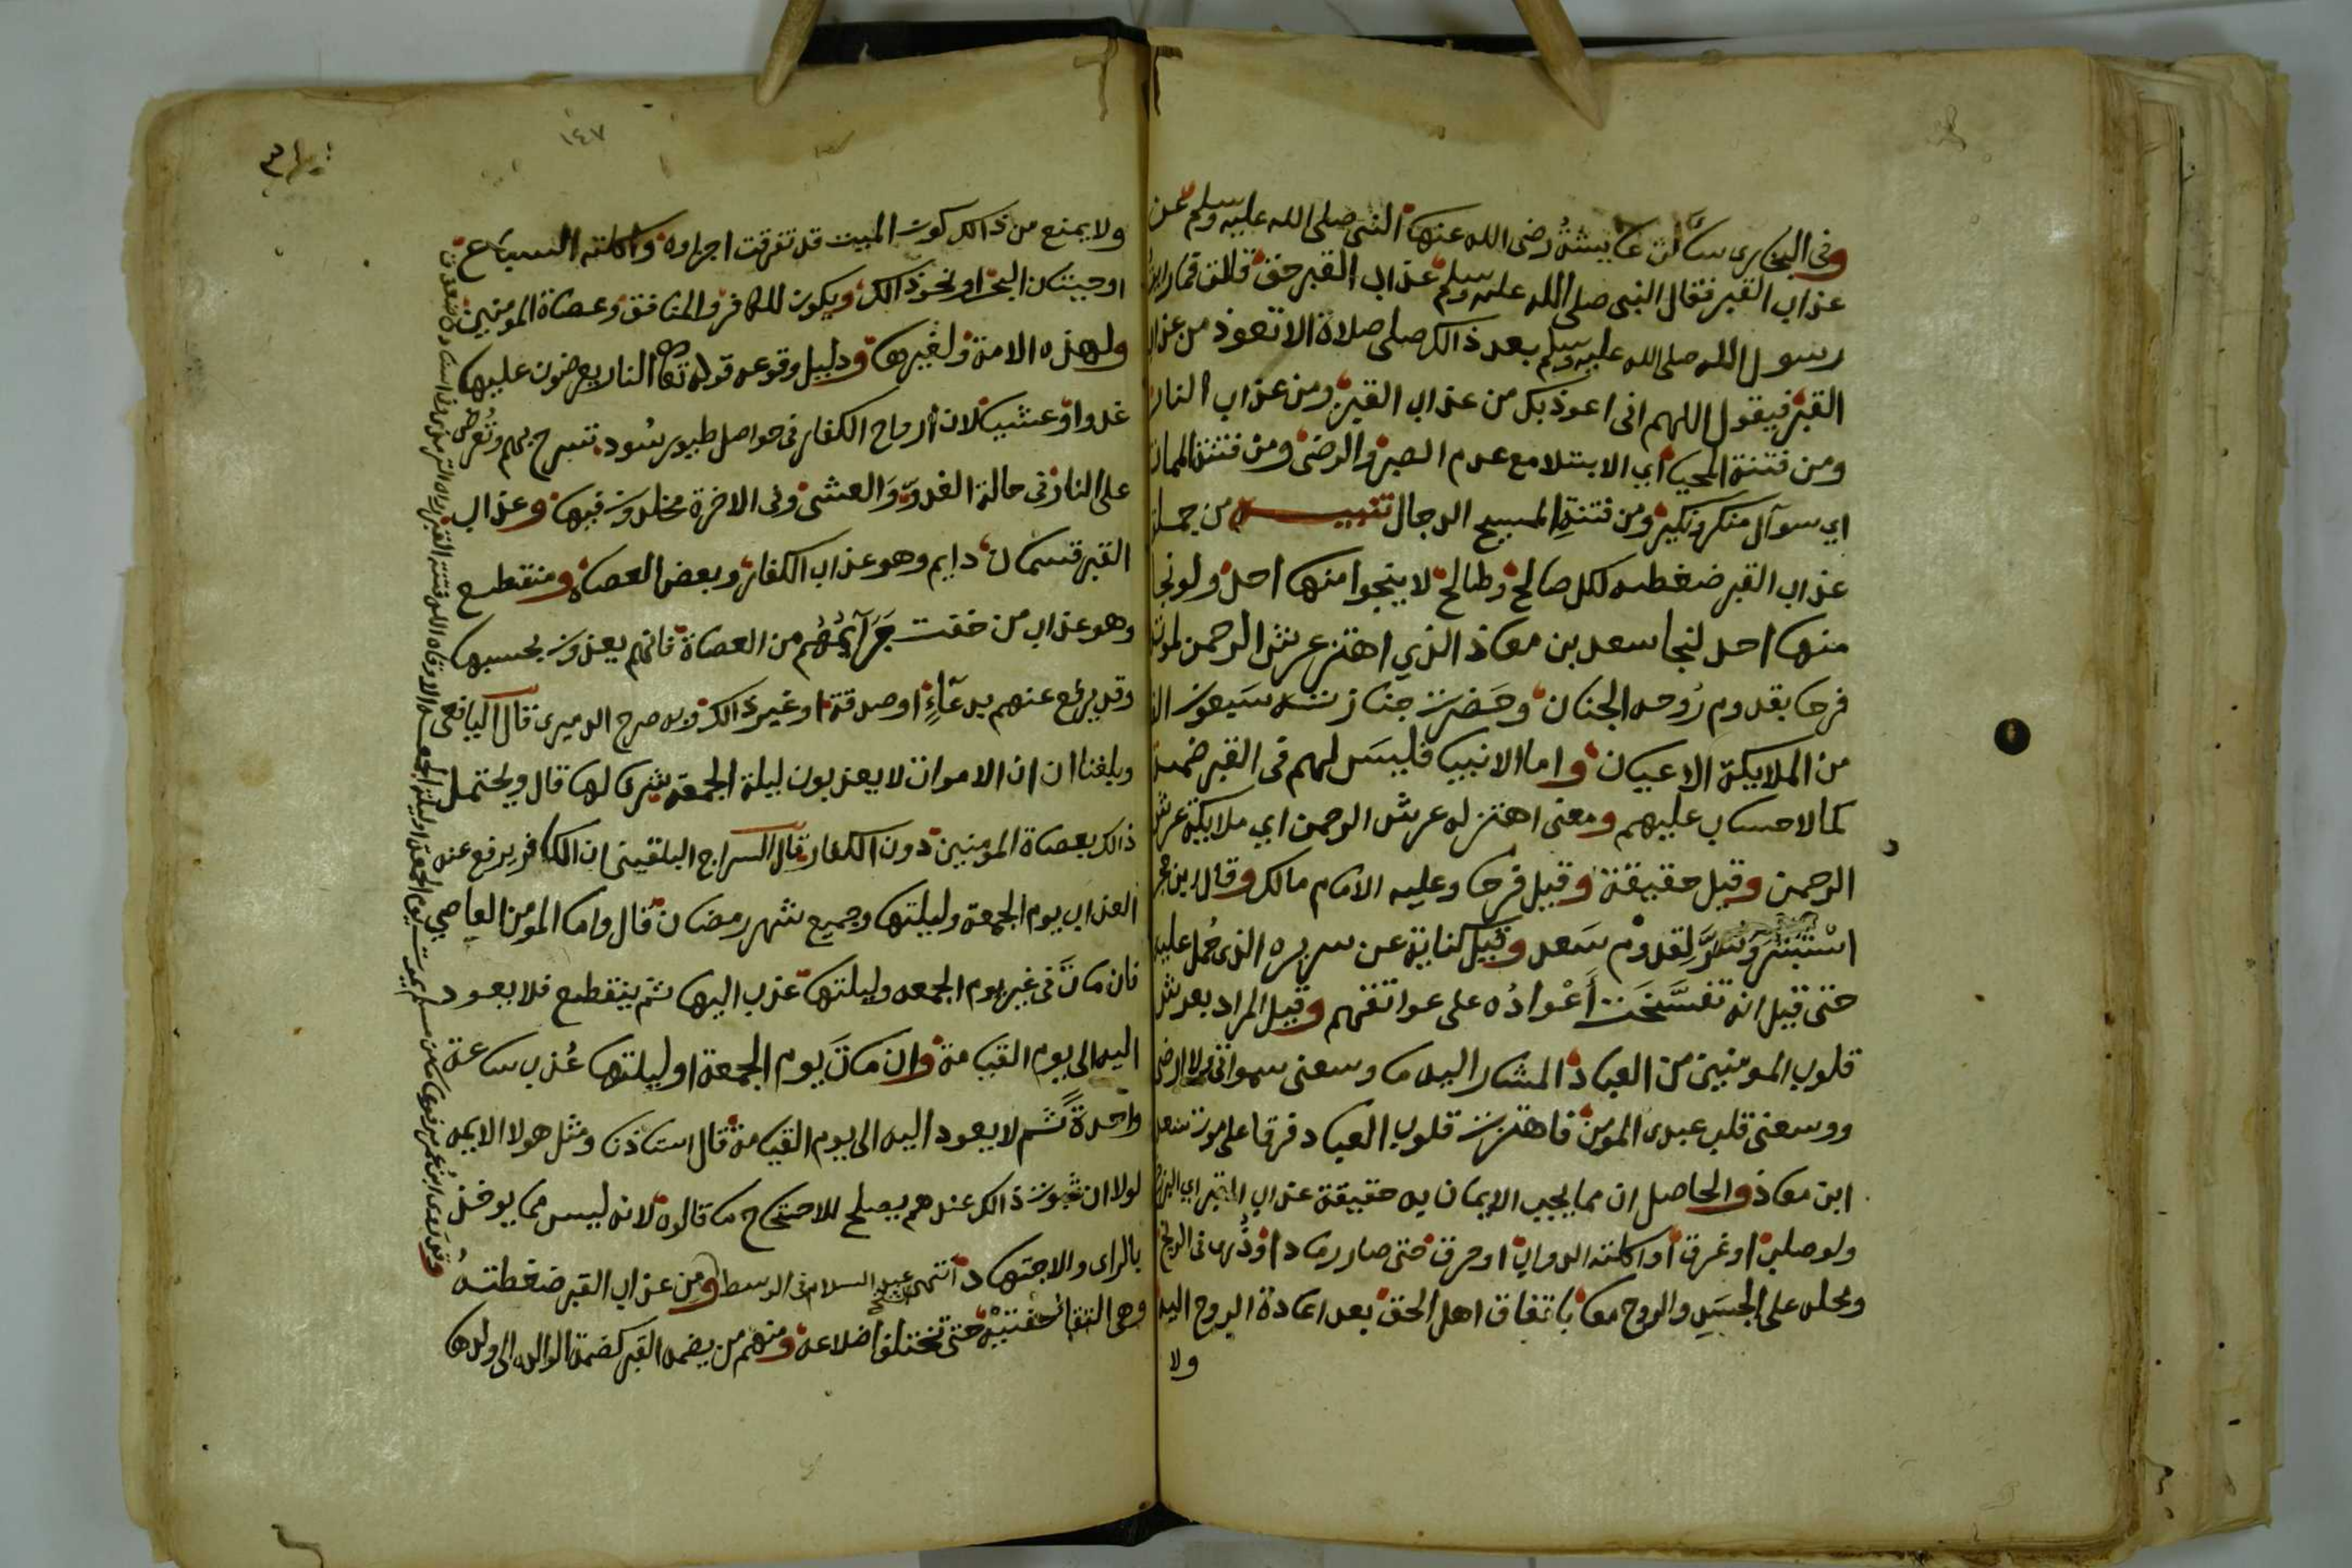 وفى البخارى سالت عايشة رضى الله عنها النبى صلى الله عليه وسلم عن
عذاب القبر فقال النبى صلى الله عليه وسلم عذاب القبر حق قالت فما رايت
رسول الله صلى الله عليه وسلم بعد ذالك صلى صلاة الا تعوذ من عذاب
القبر فيقول اللهم انى اعوذ بك من عذاب القبر ومن عذاب النار
ومن فتنة المحيا اي الابتلا مع عدم الصبر والرضى ومن فتنة الممات
اي سوآل منكر ونكير ومن فتنة المسيح الدجال تنبيه من جملة
عذاب القبر ضغطه لكل صالح وطالح لا ينجوا منها احد ولو نجا
منها احد لنجا سعد بن معاذ الذي اهتز عرش الرحمن لموته
فرحا بقدوم رُوحه الجنان وحَضرت جنازته سَبعون الف
من الملايكة الاعيان واما الانبيا فليسَ لهم فى القبر ضمة
كما لا حساب عليهم ومعنى اهتز له عرش الرحمن اي ملايكة عرش
الرحمن وقيل حقيقة وقيل فرحا وعليه الامام مالك وقال ابن حجر
اسْتبْشَرَ وَسُرَّ لِقدوْم سَعد وقيل كناية عن سريره الذى حُمل عليه
حتى قيل انه تفسَّخَت أَعْوادُه على عواتقهم وقيل المراد بعرش
قلوب المومنين من العباد المشار اليه ما وسعنى سمواتى ولا ارضى
ووسعنى قلب عبدى المومن فاهتزت قلوب العباد فرقا على موت سعد
ابن معاذ والحاصل ان مما يجب الايمان به حقيقة عذاب القبر اي البرزخ
ولو صلب او غرق او اكلته الدواب او حرق حتى صار رمادا وذُرى فى الريح
ومحله على الجسَدِ والروح معا باتفاق اهل الحق بعد اعادة الروح اليه
ولا
١٤٧
ولا يمنع من ذالك كون الميت قد تفرقت اجزاوه واكلته السباع
او حيتان البحر او نحو ذالك ويكون للكافر والمنافق وعصاة المومنين
ولهذه الامة ولغيرها ودليل وقوعه قوله تعا النار يعرضون عليها
غدوا وعشيا لان أرواح الكفار فى حواصل طيور سُود تسرح بهم وتُعرض
على النار فى حالة الغدوّ والعشى وفى الاخرة مخلدون فيها وعذاب
القبر قسمان دايم وهو عذاب الكفار وبعض العصاة ومنقطع
وهو عذاب من خفت جَرَآيمُهُم من العصاة فانهم يعذبون بحسبها
وقد يرفع عنهم بدعآءٍ او صدقة او غير ذالك وبه صرح الدميرى قال اليافعى
وبلغنا ان ان الاموات لا يعذبون ليلة الجمعة تشريفا لها قال ويحتمل
ذالك بعصاة المومنين دون الكفار قال السراج البلقينى ان الكافر يرفع عنه
العذاب يوم الجمعة وليلتها وجميع شهر رمضان قال واما المومن العاصي
فان مات فى غير يوم الجمعه وليلتها عذب اليها ثم ينقطع فلا يعود
اليه الى يوم القيامة وان ماتَ يوم الجمعة او ليلتها عُذب ساعة
واحدةً ثم لا يعود اليه الى يوم القيامة قال استاذنا ومثل هولا الايمه
لولا ان ثبوت ذالك عندهم يصلح للاحتجاج ما قالوه لانه ليس مما يوخذ
بالراى والاجتهاد انتهى عبد السلام فى الوسط ومن عذاب القبر ضغطته
وهى التقا حفتيْه حتى تختلف اضلاعه ومنهم من يضمه القبر كضمة الوالده الى ولدها
وقد روى ابن عمر مرفوعا ما من مسلم يموت يوم الجمعة او ليلة الجمعة الا وقاه الله فتنة القبر رواه الترمذى